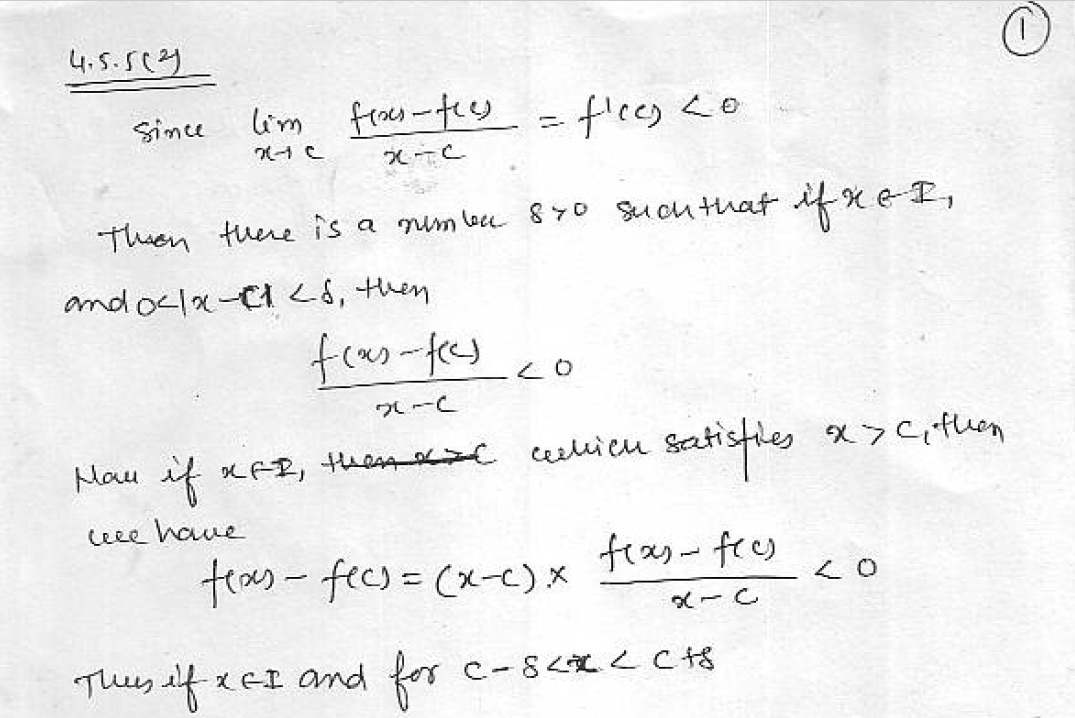 ①
4.5.5(2)
Since lim x→c (f(x)-f(c))/(x-c) = f'(c) < 0
Then there is a number δ>0 such that if x∈I,
and 0<|x-c|<δ, then
(f(x)-f(c))/(x-c) < 0
Now if x∈I, then x>c which satisfies x>c, then
we have
f(x)-f(c) = (x-c) × (f(x)-f(c))/(x-c) < 0
Thus if x∈I and for c-δ<x<c+δ